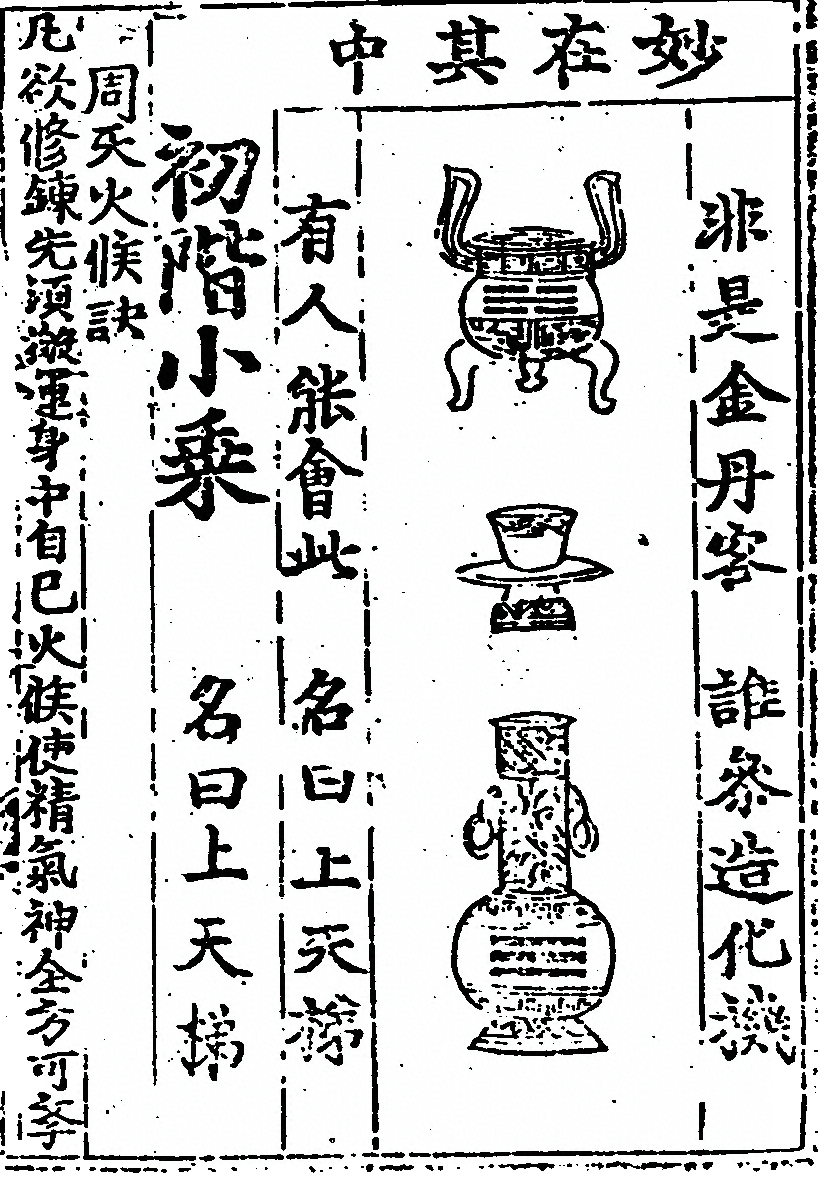 妙在其中
非是金丹客　誰叅造化機
有人能會此　名曰上天梯
初階小乘　名曰上天梯
周天火候訣
凡欲修鍊先須運身中自己火候使精氣神全方可斈